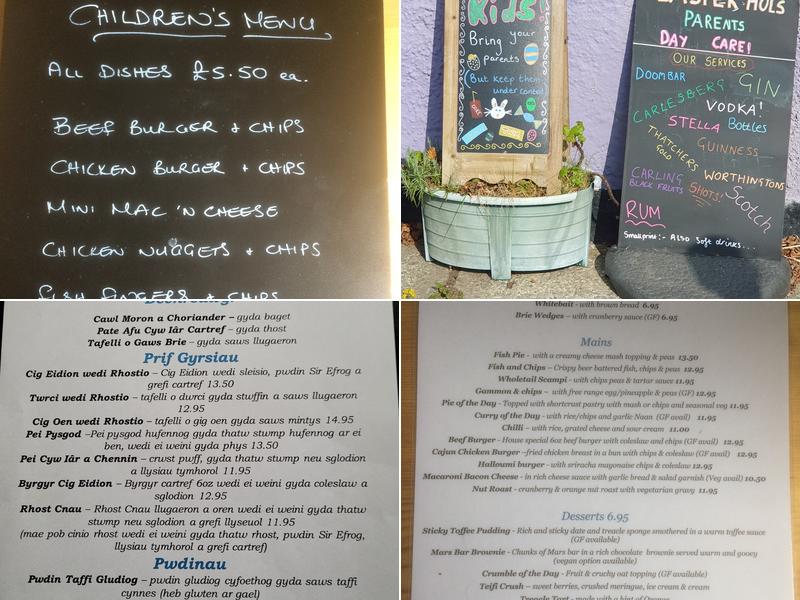 CHILDREN'S MENU
ALL DISHES £5.50 ea.
BEEF BURGER + CHIPS
CHICKEN BURGER + CHIPS
MINI MAC 'N CHEESE
CHICKEN NUGGETS + CHIPS
FISH FINGERS + CHIPS
Kids!
Bring your
parents
(But keep them
under control)
EASTER HOLS
PARENTS
DAY CARE!
OUR SERVICES
DOOMBAR
GIN
CARLESBERG
VODKA!
STELLA Bottles
THATCHERS
GOLD
GUINNESS
CARLING
BLACK FRUITS
WORTHINGTONS
SHOTS!
Scotch
RUM
Smallprint:- ALSO Soft drinks...
Cawl Moron a Choriander – gyda baget
Pate Afu Cyw Iâr Cartref – gyda thost
Tafelli o Gaws Brie – gyda saws llugaeron
Prif Gyrsiau
Cig Eidion wedi Rhostio – Cig Eidion wedi sleisio, pwdin Sir Efrog a
grefi cartref 13.50
Twrci wedi Rhostio – tafelli o dwrci gyda stwffin a saws llugaeron
12.95
Cig Oen wedi Rhostio – tafelli o gig oen gyda saws mintys 14.95
Pei Pysgod –Pei pysgod hufennog gyda thatw stwmp hufennog ar ei
ben, wedi ei weini gyda phys 13.50
Pei Cyw Iâr a Chennin – crwst puff, gyda thatw stwmp neu sglodion
a llysiau tymhorol 11.95
Byrgyr Cig Eidion – Byrgyr cartref 6oz wedi ei weini gyda coleslaw a
sglodion 12.95
Rhost Cnau – Rhost Cnau llugaeron a oren wedi ei weini gyda thatw
stwmp neu sglodion a grefi llyseuol 11.95
(mae pob cinio rhost wedi ei weini gyda thatw rhost, pwdin Sir Efrog,
llysiau tymhorol a grefi cartref)
Pwdinau
Pwdin Taffi Gludiog – pwdin gludiog cyfoethog gyda saws taffi
cynnes (heb glwten ar gael)
Whitebait - with brown bread 6.95
Brie Wedges – with cranberry sauce (GF) 6.95
Mains
Fish Pie - with a creamy cheese mash topping & peas 13.50
Fish and Chips – Crispy beer battered fish, chips & peas 12.95
Wholetail Scampi - with chips peas & tartar sauce 11.95
Gammon & chips – with free range egg/pineapple & peas (GF) 12.95
Pie of the Day - Topped with shortcrust pastry with mash or chips and seasonal veg 11.95
Curry of the Day - with rice/chips and garlic Naan (GF avail) 11.95
Chilli – with rice, grated cheese and sour cream 11.00
Beef Burger - House special 6oz beef burger with coleslaw and chips (GF avail) 12.95
Cajun Chicken Burger –fried chicken breast in a bun with chips & coleslaw (GF avail) 12.95
Halloumi burger - with sriracha mayonaise chips & coleslaw 12.95
Macaroni Bacon Cheese - in rich cheese sauce with garlic bread & salad garnish (Veg avail) 10.50
Nut Roast - cranberry & orange nut roast with vegetarian gravy 11.95
Desserts 6.95
Sticky Toffee Pudding - Rich and sticky date and treacle sponge smothered in a warm toffee sauce
(GF available)
Mars Bar Brownie - Chunks of Mars bar in a rich chocolate brownie served warm and gooey
(vegan option available)
Crumble of the Day - Fruit & cruchy oat topping (GF available)
Teifi Crush – sweet berries, crushed meringue, ice cream & cream
Treacle Tart - made with a hint of Orange